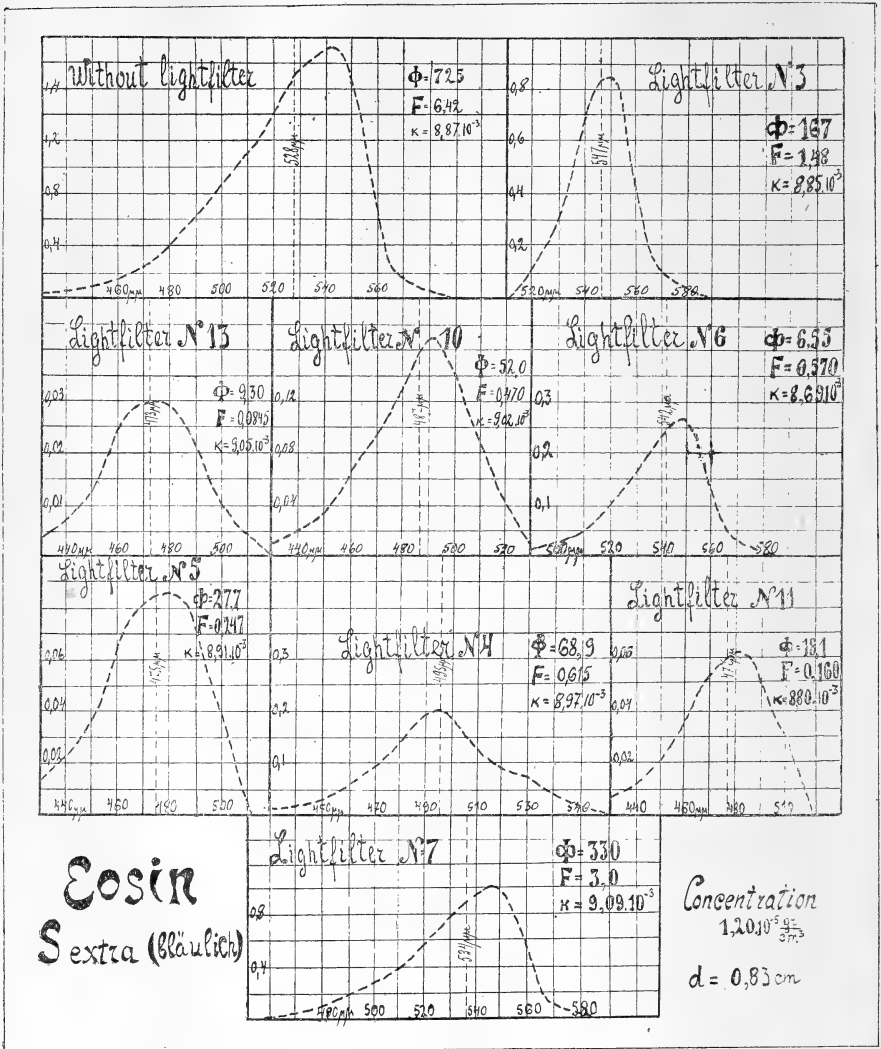 Without lightfilter
Φ=725
F=6,42
κ=8,87.10⁻³
1,2
0,8
0,4
528μμ
460μμ 480 500 520 540 560
Lightfilter N 3
Φ=167
F=1,48
κ=8,85.10⁻³
0,8
0,6
0,4
0,2
547μμ
520μμ 540 560 580
Lightfilter N 13
Φ=9,30
F=0,0845
κ=9,05.10⁻³
0,03
0,02
0,01
473μμ
440μμ 460 480 500
Lightfilter N 10
Φ=52,0
F=0,470
κ=9,02.10⁻³
0,12
0,08
0,04
440μμ 460 480 500 520
Lightfilter N 6
Φ=6,55
F=0,570
κ=8,69.10⁻³
0,3
0,2
0,1
542μμ
520 540 560 580
Lightfilter N 5
Φ=27,7
F=0,247
κ=8,91.10⁻³
0,06
0,04
0,02
440μμ 460 480 500
Lightfilter N 4
Φ=68,9
F=0,615
κ=8,97.10⁻³
0,3
0,2
0,1
495μμ
450μμ 470 490 510 530
Lightfilter N 11
Φ=18,1
F=0,160
κ=8,80.10⁻³
0,06
0,04
0,02
440 460μμ 480
Lightfilter N 7
Φ=330
F=3,0
κ=9,09.10⁻³
0,8
0,4
534μμ
480μμ 500 520 540 560 580
Eosin
S extra (bläulich)
Concentration
1,20.10⁻⁵
d = 0,83 cm